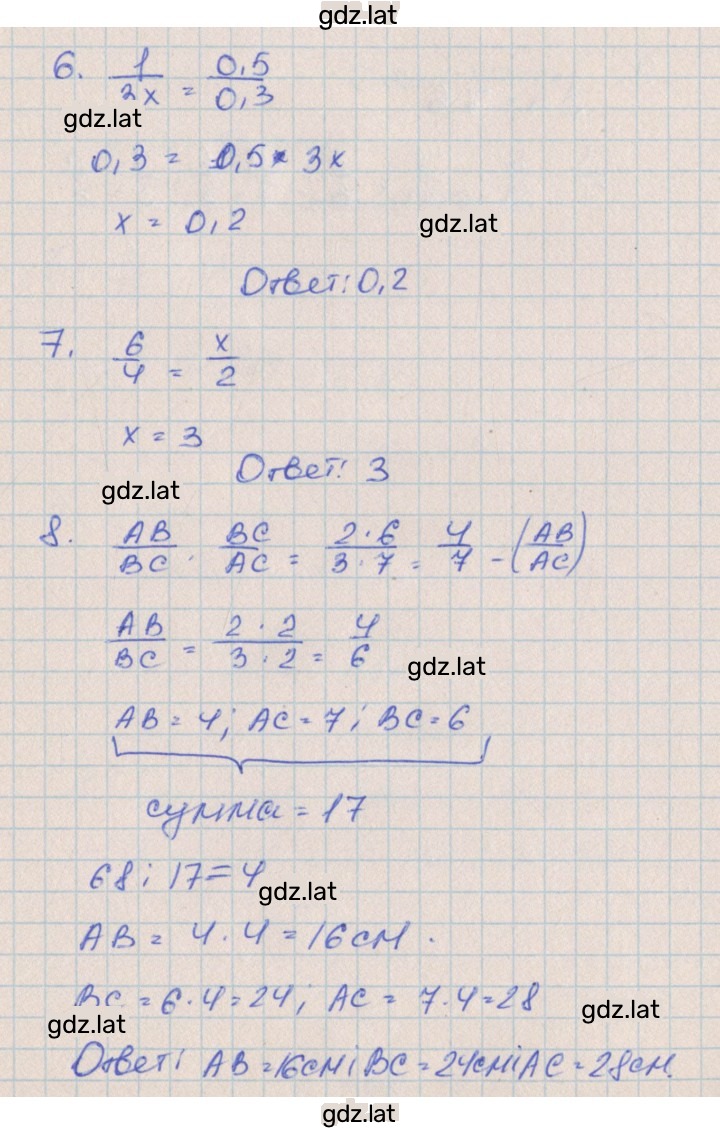 gdz.lat
6. 1/2x = 0,5/0,3
gdz.lat
0,3 = 0,5 × 3x
x = 0,2
gdz.lat
Ответ: 0,2
7. 6/4 = x/2
x = 3
Ответ: 3
gdz.lat
8. AB/BC · BC/AC = 2·6/3·7 = 4/7 - (AB/AC)
AB/BC = 2·2/3·2 = 4/6
gdz.lat
AB = 4; AC = 7; BC = 6
сумма = 17
68 : 17 = 4
gdz.lat
AB = 4·4 = 16 см.
BC = 6·4 = 24; AC = 7·4 = 28
gdz.lat
gdz.lat
Ответ: AB = 16 см; BC = 24 см; AC = 28 см.
gdz.lat